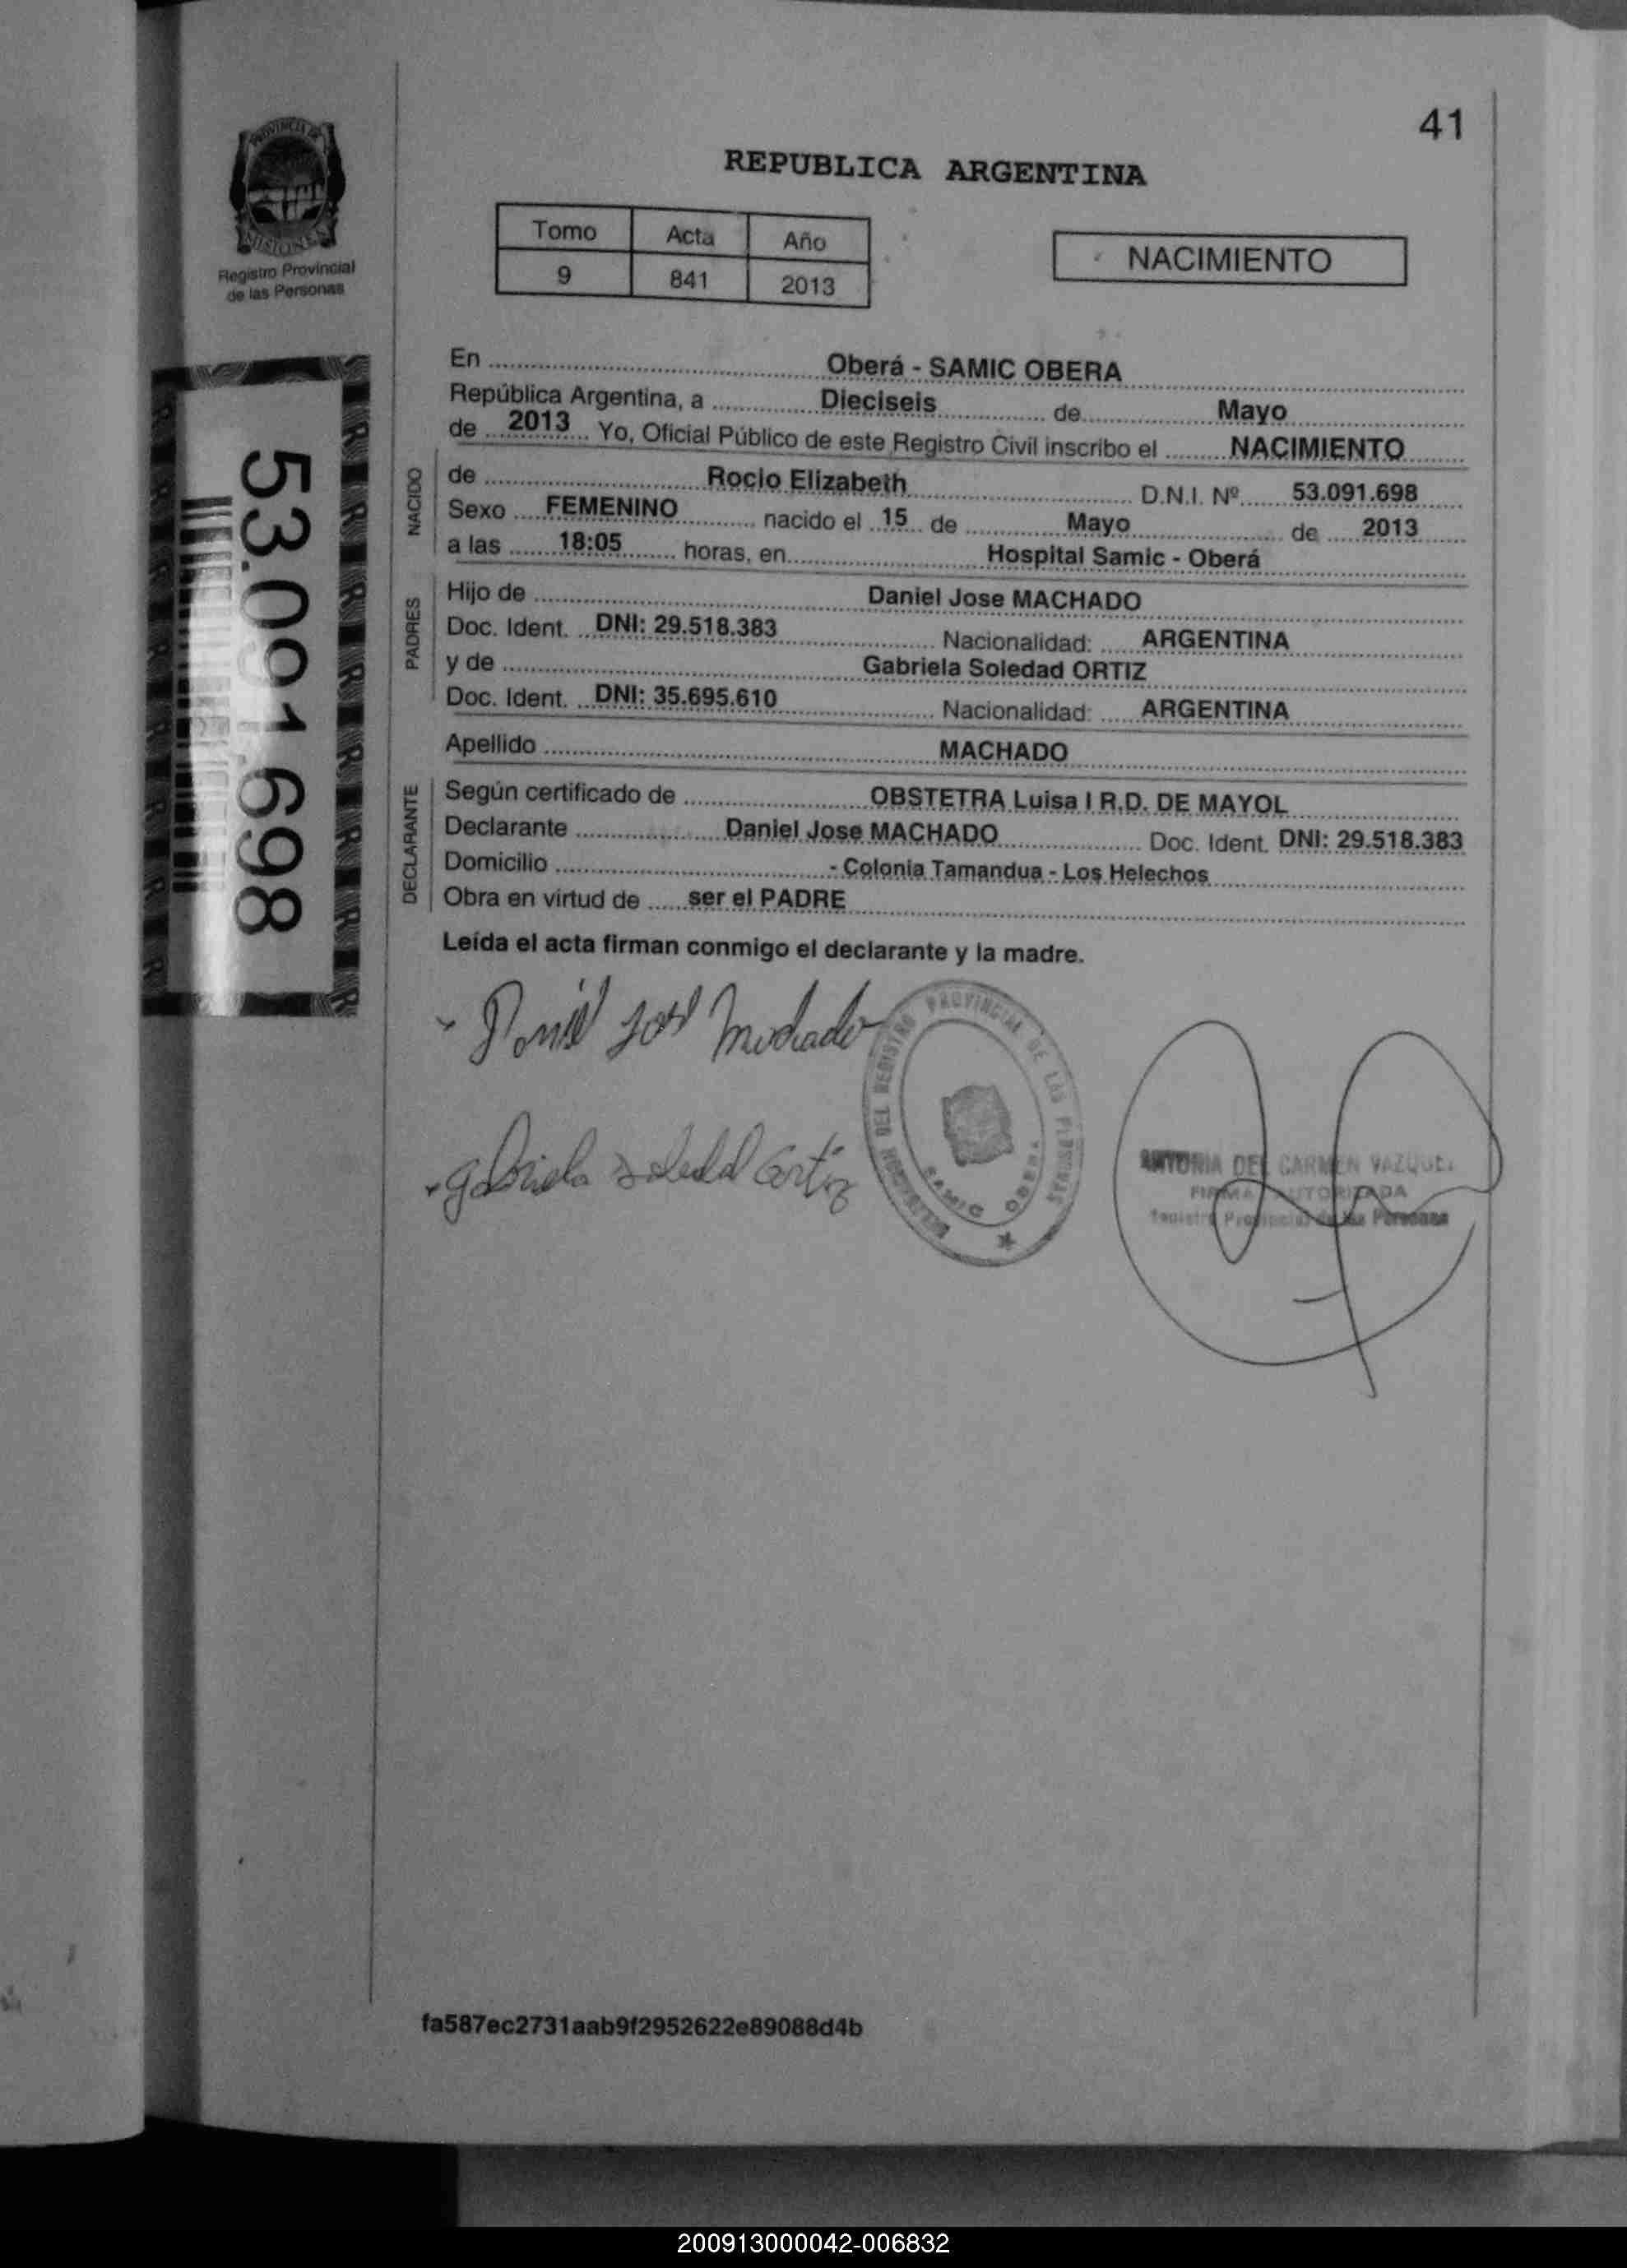 41
REPUBLICA ARGENTINA
PROVINCIA DE
MISIONES
Registro Provincial
de las Personas
Tomo Acta Año
9 841 2013
NACIMIENTO
53.091.698
En Oberá - SAMIC OBERA
República Argentina, a Dieciseis de Mayo
de 2013 Yo, Oficial Público de este Registro Civil inscribo el NACIMIENTO
NACIDO
de Rocio Elizabeth D.N.I. Nº 53.091.698
Sexo FEMENINO nacido el 15 de Mayo de 2013
a las 18:05 horas, en Hospital Samic - Oberá
PADRES
Hijo de Daniel Jose MACHADO
Doc. Ident. DNI: 29.518.383 Nacionalidad: ARGENTINA
y de Gabriela Soledad ORTIZ
Doc. Ident. DNI: 35.695.610 Nacionalidad: ARGENTINA
Apellido MACHADO
DECLARANTE
Según certificado de OBSTETRA Luisa I R.D. DE MAYOL
Declarante Daniel Jose MACHADO Doc. Ident. DNI: 29.518.383
Domicilio - Colonia Tamandua - Los Helechos
Obra en virtud de ser el PADRE
Leída el acta firman conmigo el declarante y la madre.
Daniel José Machado
DEL REGISTRO PROVINCIAL DE LAS PERSONAS
SAMIC OBERA
Gabriela Soledad Ortiz
ANTONIA DEL CARMEN VAZQUEZ
FIRMA AUTORIZADA
Registro Provincial de las Personas
fa587ec2731aab9f2952622e89088d4b
200913000042-006832